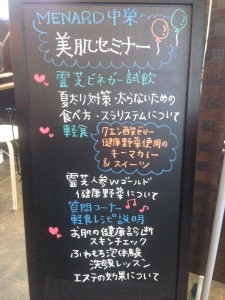 MENARD 中栄
美肌セミナー
霊芝ビネガー試飲
夏太り対策・太らないための
食べ方・スラリステムについて
軽食
クエン酸ゼリー
健康野菜使用の
キーマカレー
&スイーツ
霊芝人参Wゴールド
健康野菜について
質問コーナー
軽食レシピ説明
お肌の健康診断
スキンチェック
ふわもち泡体験
洗顔レッスン
エステの効果について